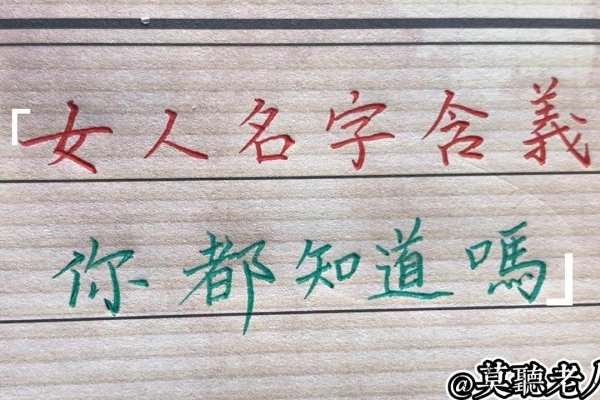 「女人名字含義
你都知道嗎」
@莫聽老人